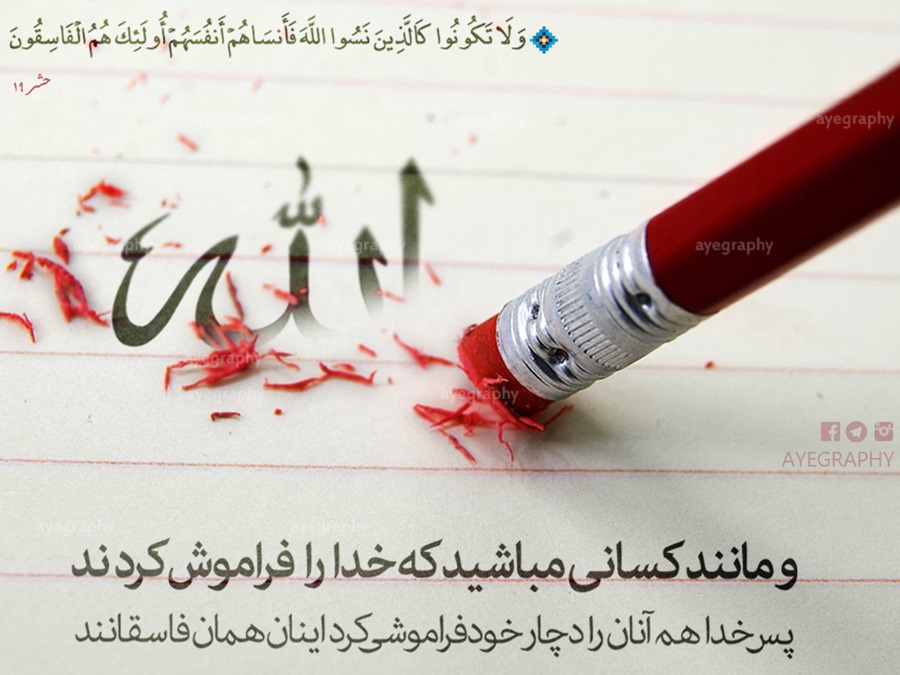 وَلَا تَكُونُوا كَالَّذِينَ نَسُوا اللَّهَ فَأَنسَاهُمْ أَنفُسَهُمْ أُولَئِكَ هُمُ الْفَاسِقُونَ
حشر ۱۹
ayegraphy
الله
ayegraphy
ayegraphy
ayegraphy
ayegraphy
AYEGRAPHY
ayegraphy
ayegraphy
و مانند کسانی مباشید که خدا را فراموش کردند
پس خدا هم آنان را دچار خودفراموشی کرد اینان همان فاسقانند